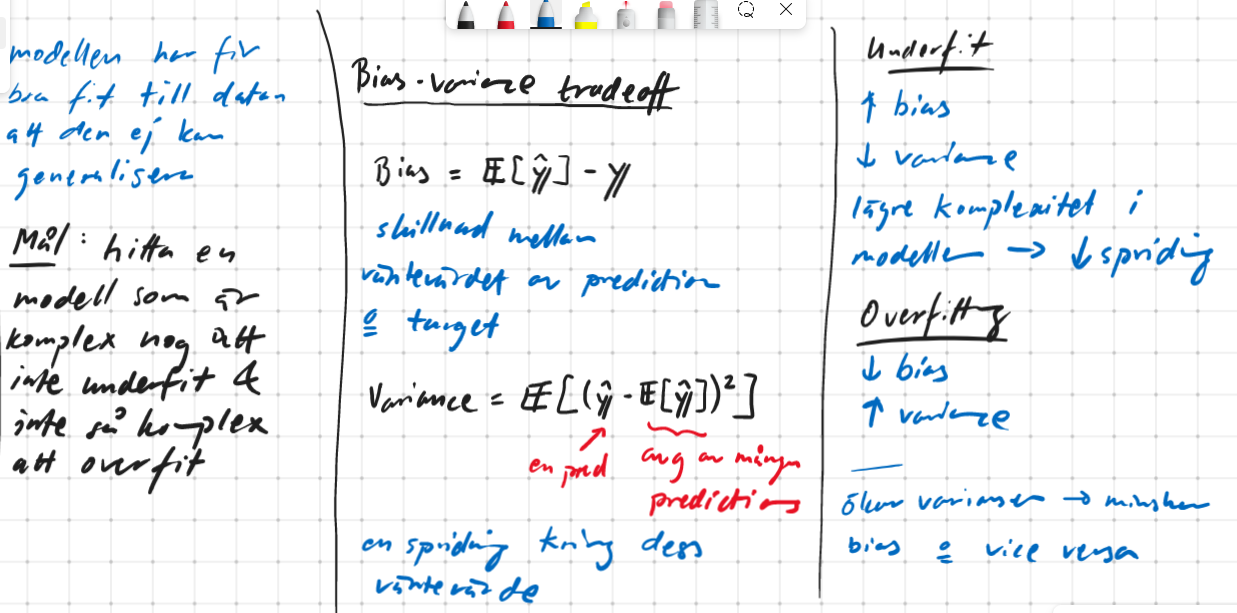 modellen har för
bra fit till datan
att den ej kan
generalisera
Mål: hitta en
modell som är
komplex nog att
inte underfit &
inte så komplex
att overfit
Bias-variance tradeoff
Bias = 𝔼[ŷ] - y
skillnad mellan
väntevärdet av prediction
o target
Variance = 𝔼[(ŷ - 𝔼[ŷ])²]
en pred
avg av många
predictions
en spridning kring dess
väntevärde
Underfit
↑ bias
↓ variance
lägre komplexitet i
modellen → ↓ spriding
Overfitting
↓ bias
↑ variance
ökar variansen → minskar
bias o vice versa